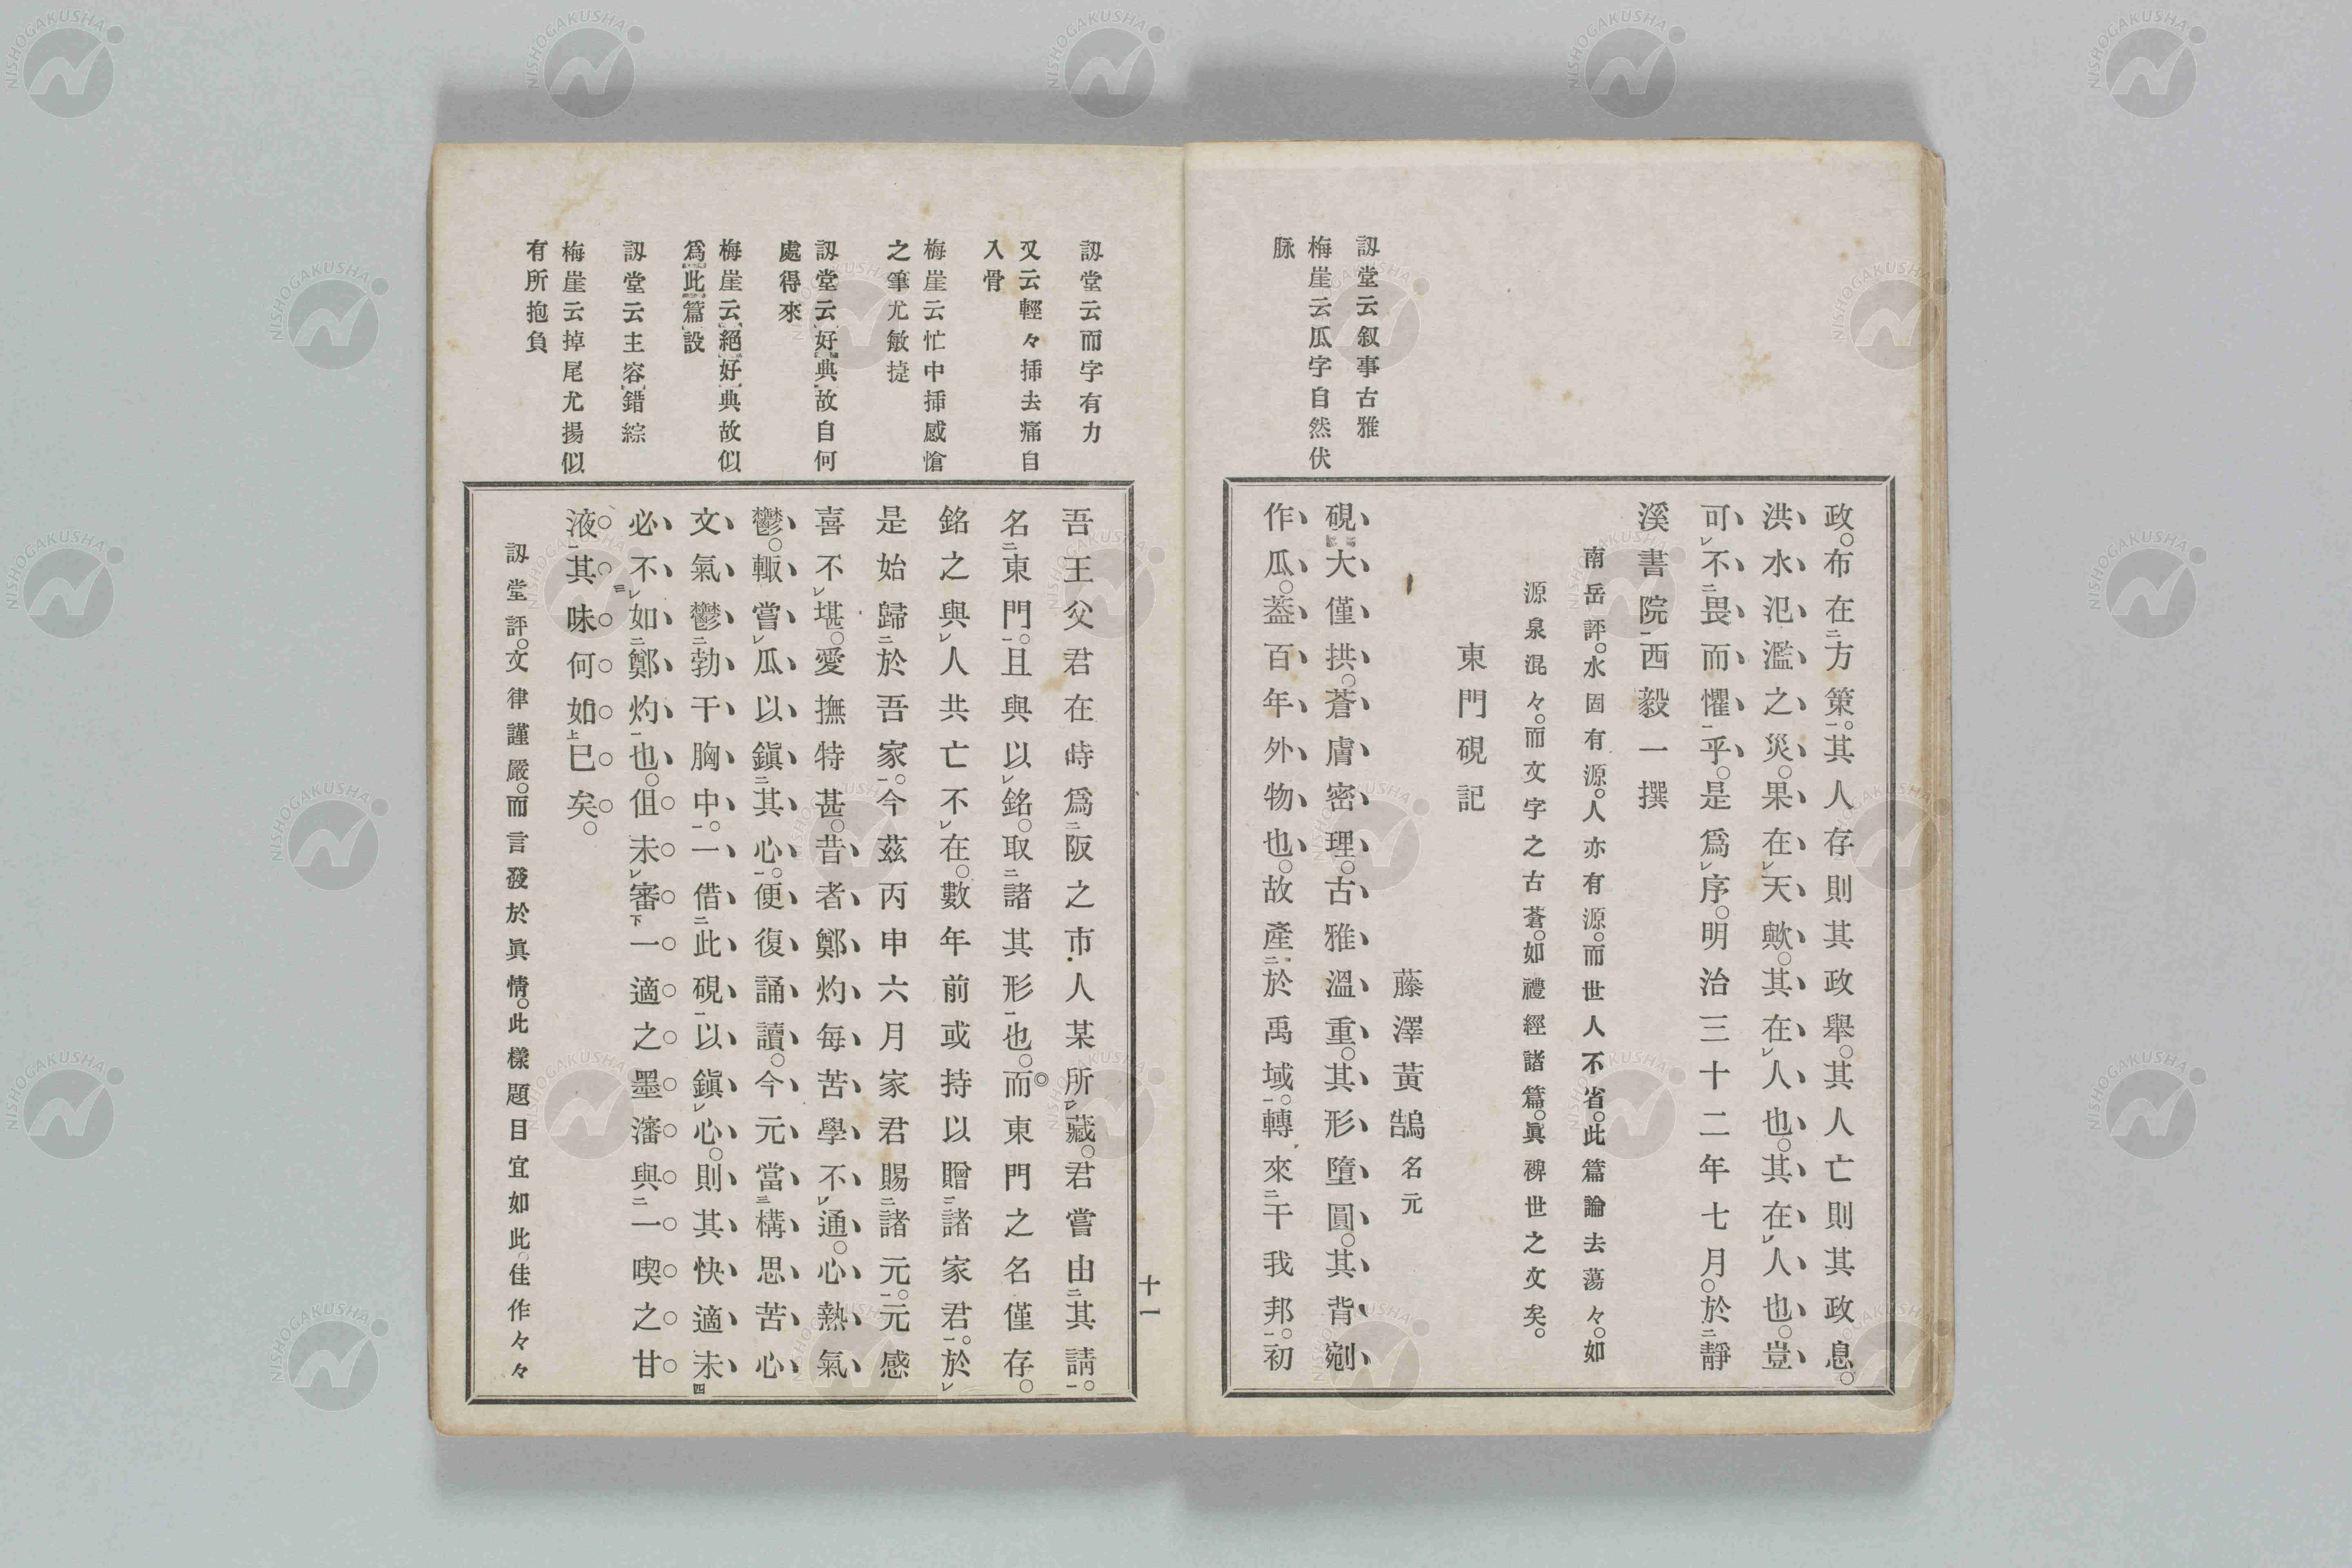 政。布在二方策一。其人存則其政舉。其人亡則其政息。
洪水氾濫之災。果在レ天歟。其在レ人也。其在レ人也。豈
可レ不二畏而懼一乎。是爲レ序。明治三十二年七月。於二靜
溪書院一西毅一撰
南岳評。水固有源。人亦有源。而世人不省。此篇論去蕩々。如
源泉混々。而文字之古蒼。如禮經諸篇。眞裨世之文矣。
東門硯記
藤澤黃鵠名元
訒堂云叙事古雅
梅崖云瓜字自然伏
脉
硯大僅拱。蒼膚密理。古雅溫重。其形墮圓。其背剜
作瓜。葢百年外物也。故產二於禹域一。轉來二干我邦一。初
十一
訒堂云而字有力
又云輕々揷去痛自
入骨
梅崖云忙中揷感愴
之筆尤敏捷
訒堂云好典故自何
處得來
梅崖云絕好典故似
爲此篇設
訒堂云主容錯綜
梅崖云掉尾尤揚似
有所抱負
吾王父君在時爲二阪之市人某所レ藏。君嘗由二其請一。
名二東門一。且與以レ銘。取二諸其形一也。而東門之名僅存。
銘之與レ人共亡不レ在。數年前或持以贈二諸家君一。於レ
是始歸二於吾家一。今茲丙申六月家君賜二諸元一。元感
喜不レ堪。愛撫特甚。昔者鄭灼每苦學不レ通。心熱氣
鬱。輙嘗レ瓜以鎭二其心一。便復誦讀。今元當三構思苦心
文氣鬱二勃干胸中一。一借二此硯一以鎭レ心。則其快適未四
必不三レ如二鄭灼一也。伹未レ審下一適之墨瀋與二一喫之甘
液一其味何如上巳矣。
訒堂評。文律謹嚴。而言發於眞情。此樣題目宜如此。佳作々々
NISHOGAKUSHA